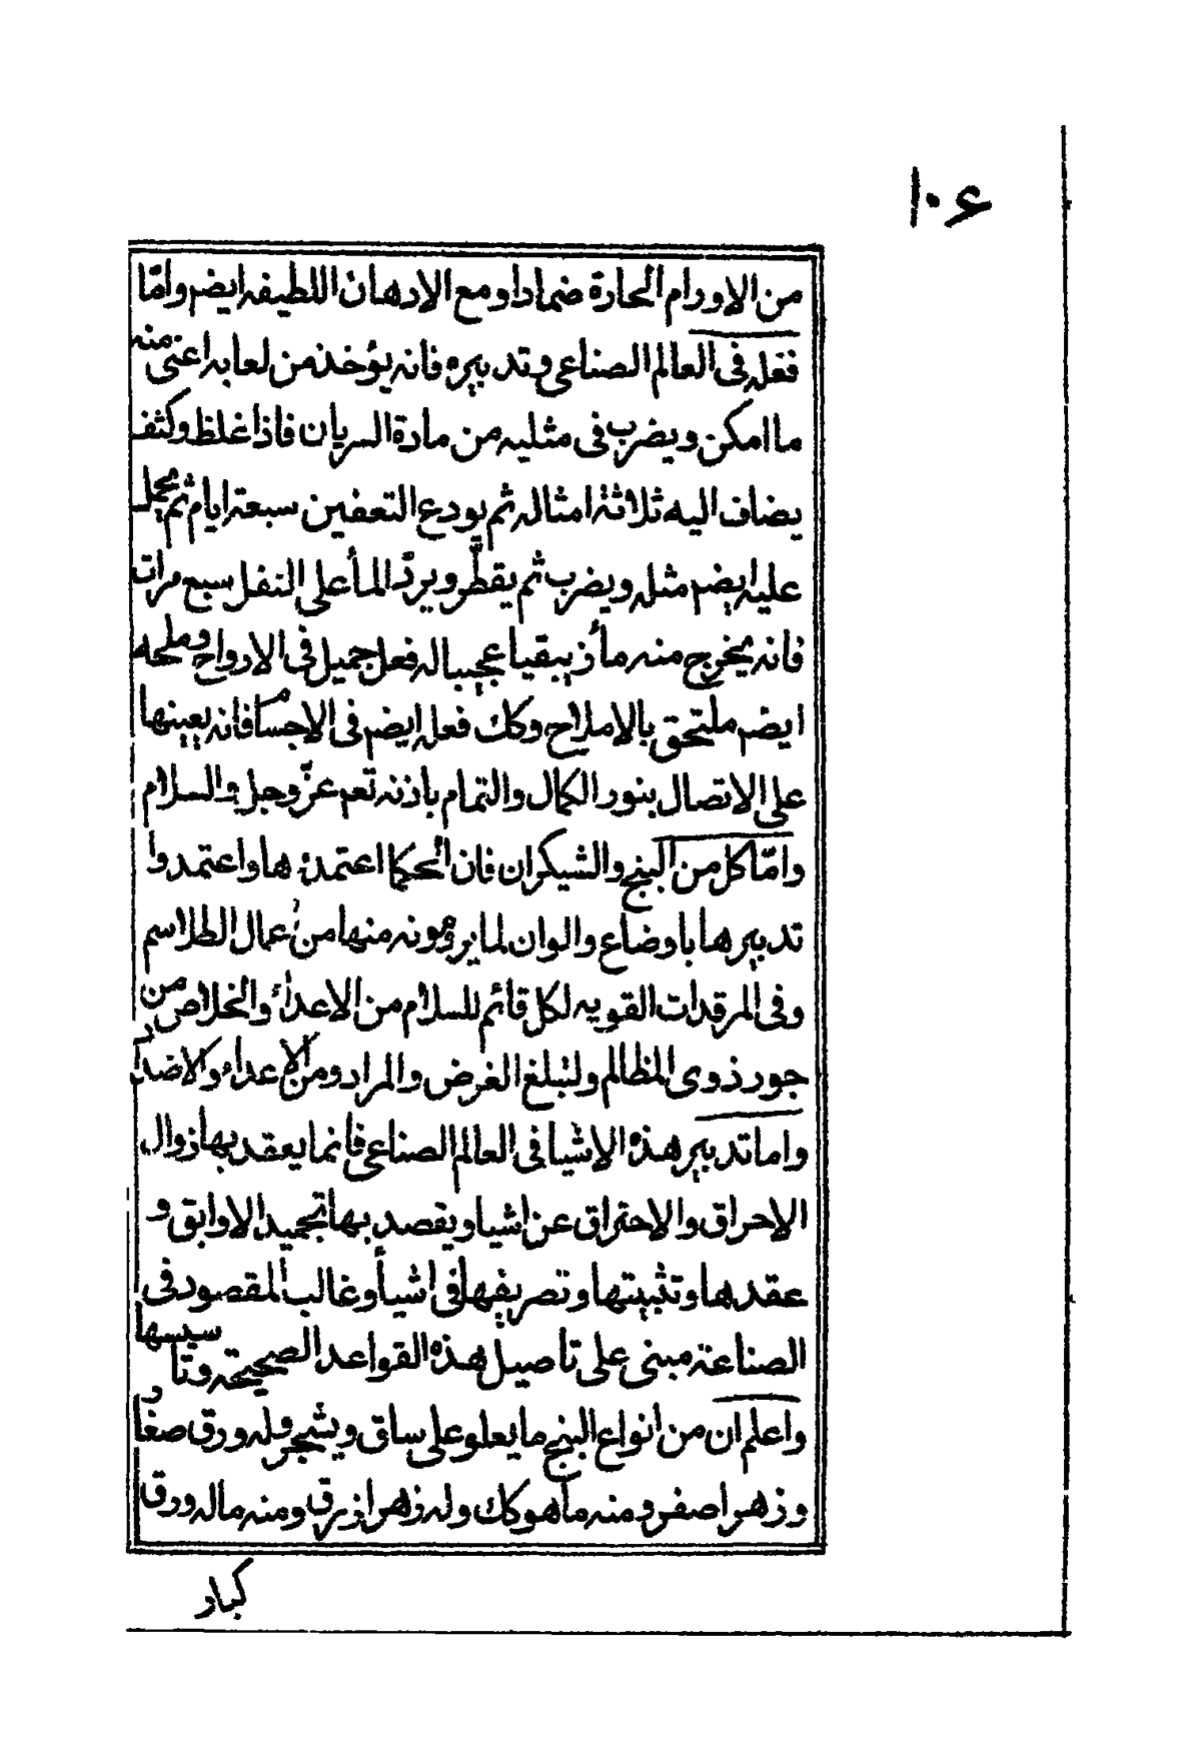 ١٠٦
من الاورام الحارة ضمادا ومع الادهان اللطيفه ايضم وامّا
فعله فى العالم الصناعى وتدبيره فانه يؤخذ من لعابه اعنى منه
ما امكن ويضرب فى مثليه من مادة السريان فاذا غلظ وكثف
يضاف اليه ثلاثة امثاله ثم يودع التعفين سبعة ايام ثم يحمل
عليه ايضم مثله ويضرب ثم يقطّر ويردّ المأ على التفل سبع مرات
فانه يخرج منه مأ زيبقيا عجيبا له فعل جميل فى الارواح وملحه
ايضم ملتحق بالاملاح وكك فعله ايضم فى الاجسام فانه يعينها
على الاتصال بنور الكمال والتمام باذنه تعم عزّ وجل والسلام
وامّا كل من البنج والشيكران فان الحكما اعتمدوها واعتمدوا
تدبيرها باوضاع والوان لما يرومونه منها من اعمال الطلاسم
وفى المرقدات القويه لكل قائم للسلام من الاعداء والخلاص من
جور ذوى المظالم ولتبلغ الغرض والمراد ومن الاعداء والاضداد
واما تدبير هذه الاشيا فى العالم الصناعى فانما يعقد بها زوال
الاحراق والاحتراق عن اشيا ويقصد بها تجميد الاوابق و
عقدها وتثبيتها وتصريفها فى اشيأ وغالب المقصود فى
الصناعة مبنى على تاصيل هذه القواعد الصحيحة وتاسيسها
واعلم ان من انواع البنج ما يعلو على ساق ويشجر وله ورق صغار
وزهر اصفر ومنه ما هو كك وله زهر ازرق ومنه ماله ورق
كبار